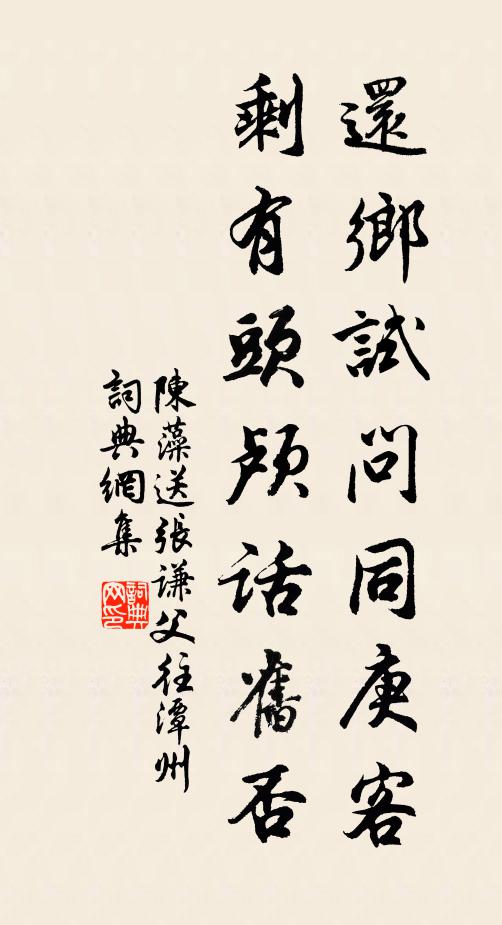 還鄉試問同庚客
剩有頭顱話舊否
陳藻送張謙父往潭州
詞典網集
詞典网印